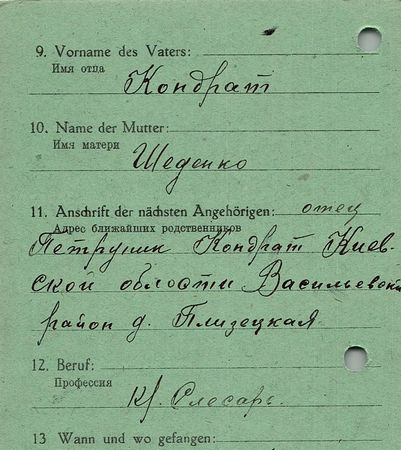 9. Vorname des Vaters:
Имя отца
Кондрат
10. Name der Mutter:
Имя матери
Шеденко
11. Anschrift der nächsten Angehörigen: отец
Адрес ближайших родственников
Петруник Кондрат Киев-
ской области Васильевский
район д. Плизецкая
12. Beruf:
Профессия
Кр. Слесарь.
13 Wann und wo gefangen: